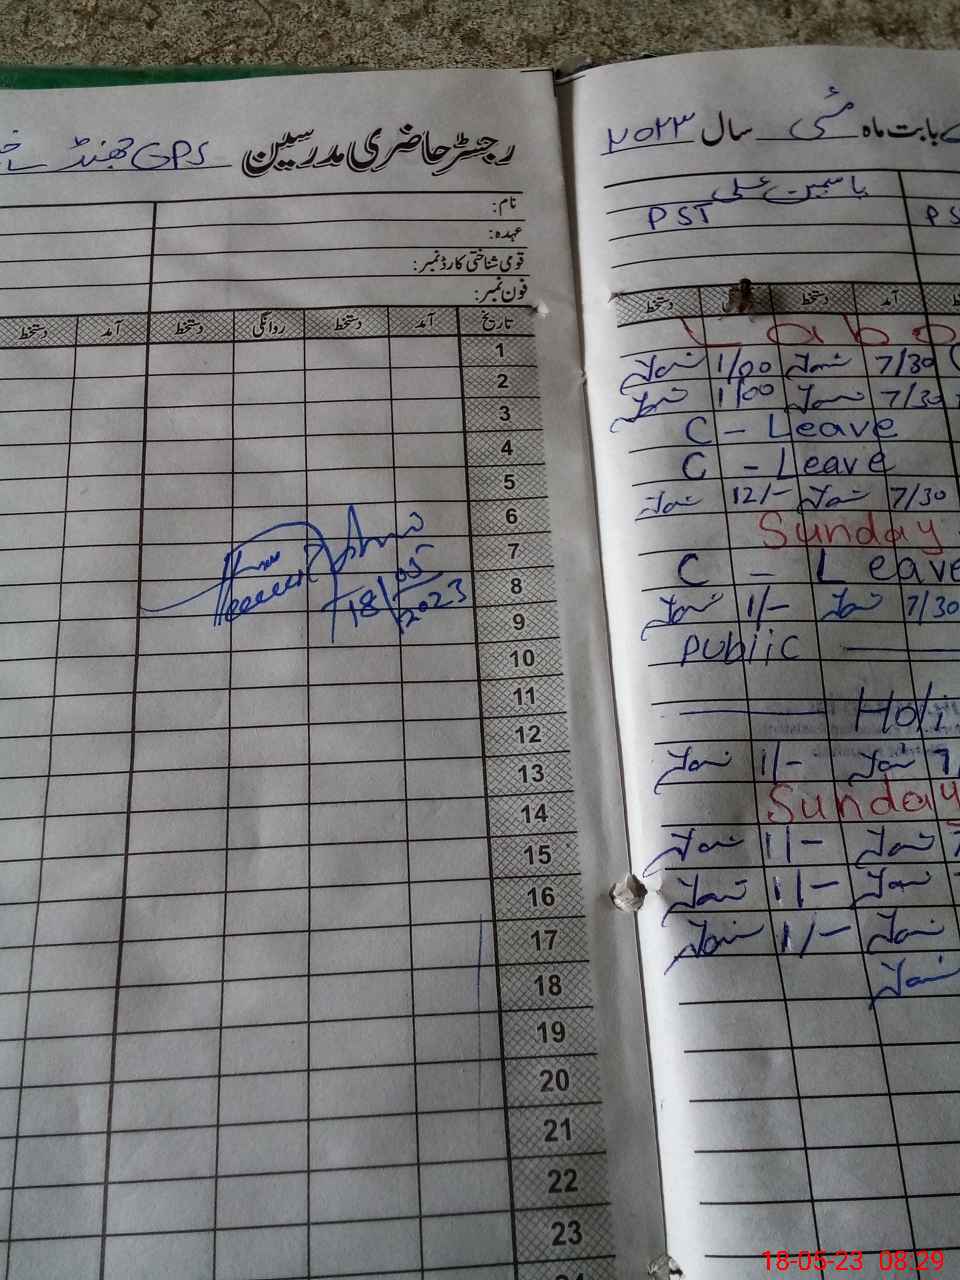 رجسٹر حاضری مدرسین GPS جھنڈ
نام:
عہدہ:
قومی شناختی کارڈ نمبر:
فون نمبر:
تاریخ آمد دستخط روانگی دستخط آمد دستخط
1
2
3
4
5
6
7
8
9
10
11
12
13
14
15
16
17
18
19
20
21
22
23
18/05/2023
بابت ماہ مئی سال ۲۰۲۳
یاسمین علی
PST
آمد دستخط دستخط
Labo
7/30 1/00
7/30 1/00
C - Leave
C - Leave
7/30 12/-
Sunday
C - Leave
7/30 1/-
Public
Holi
1/-
Sunday
1/-
1/-
1/-
18-05-23 08:29